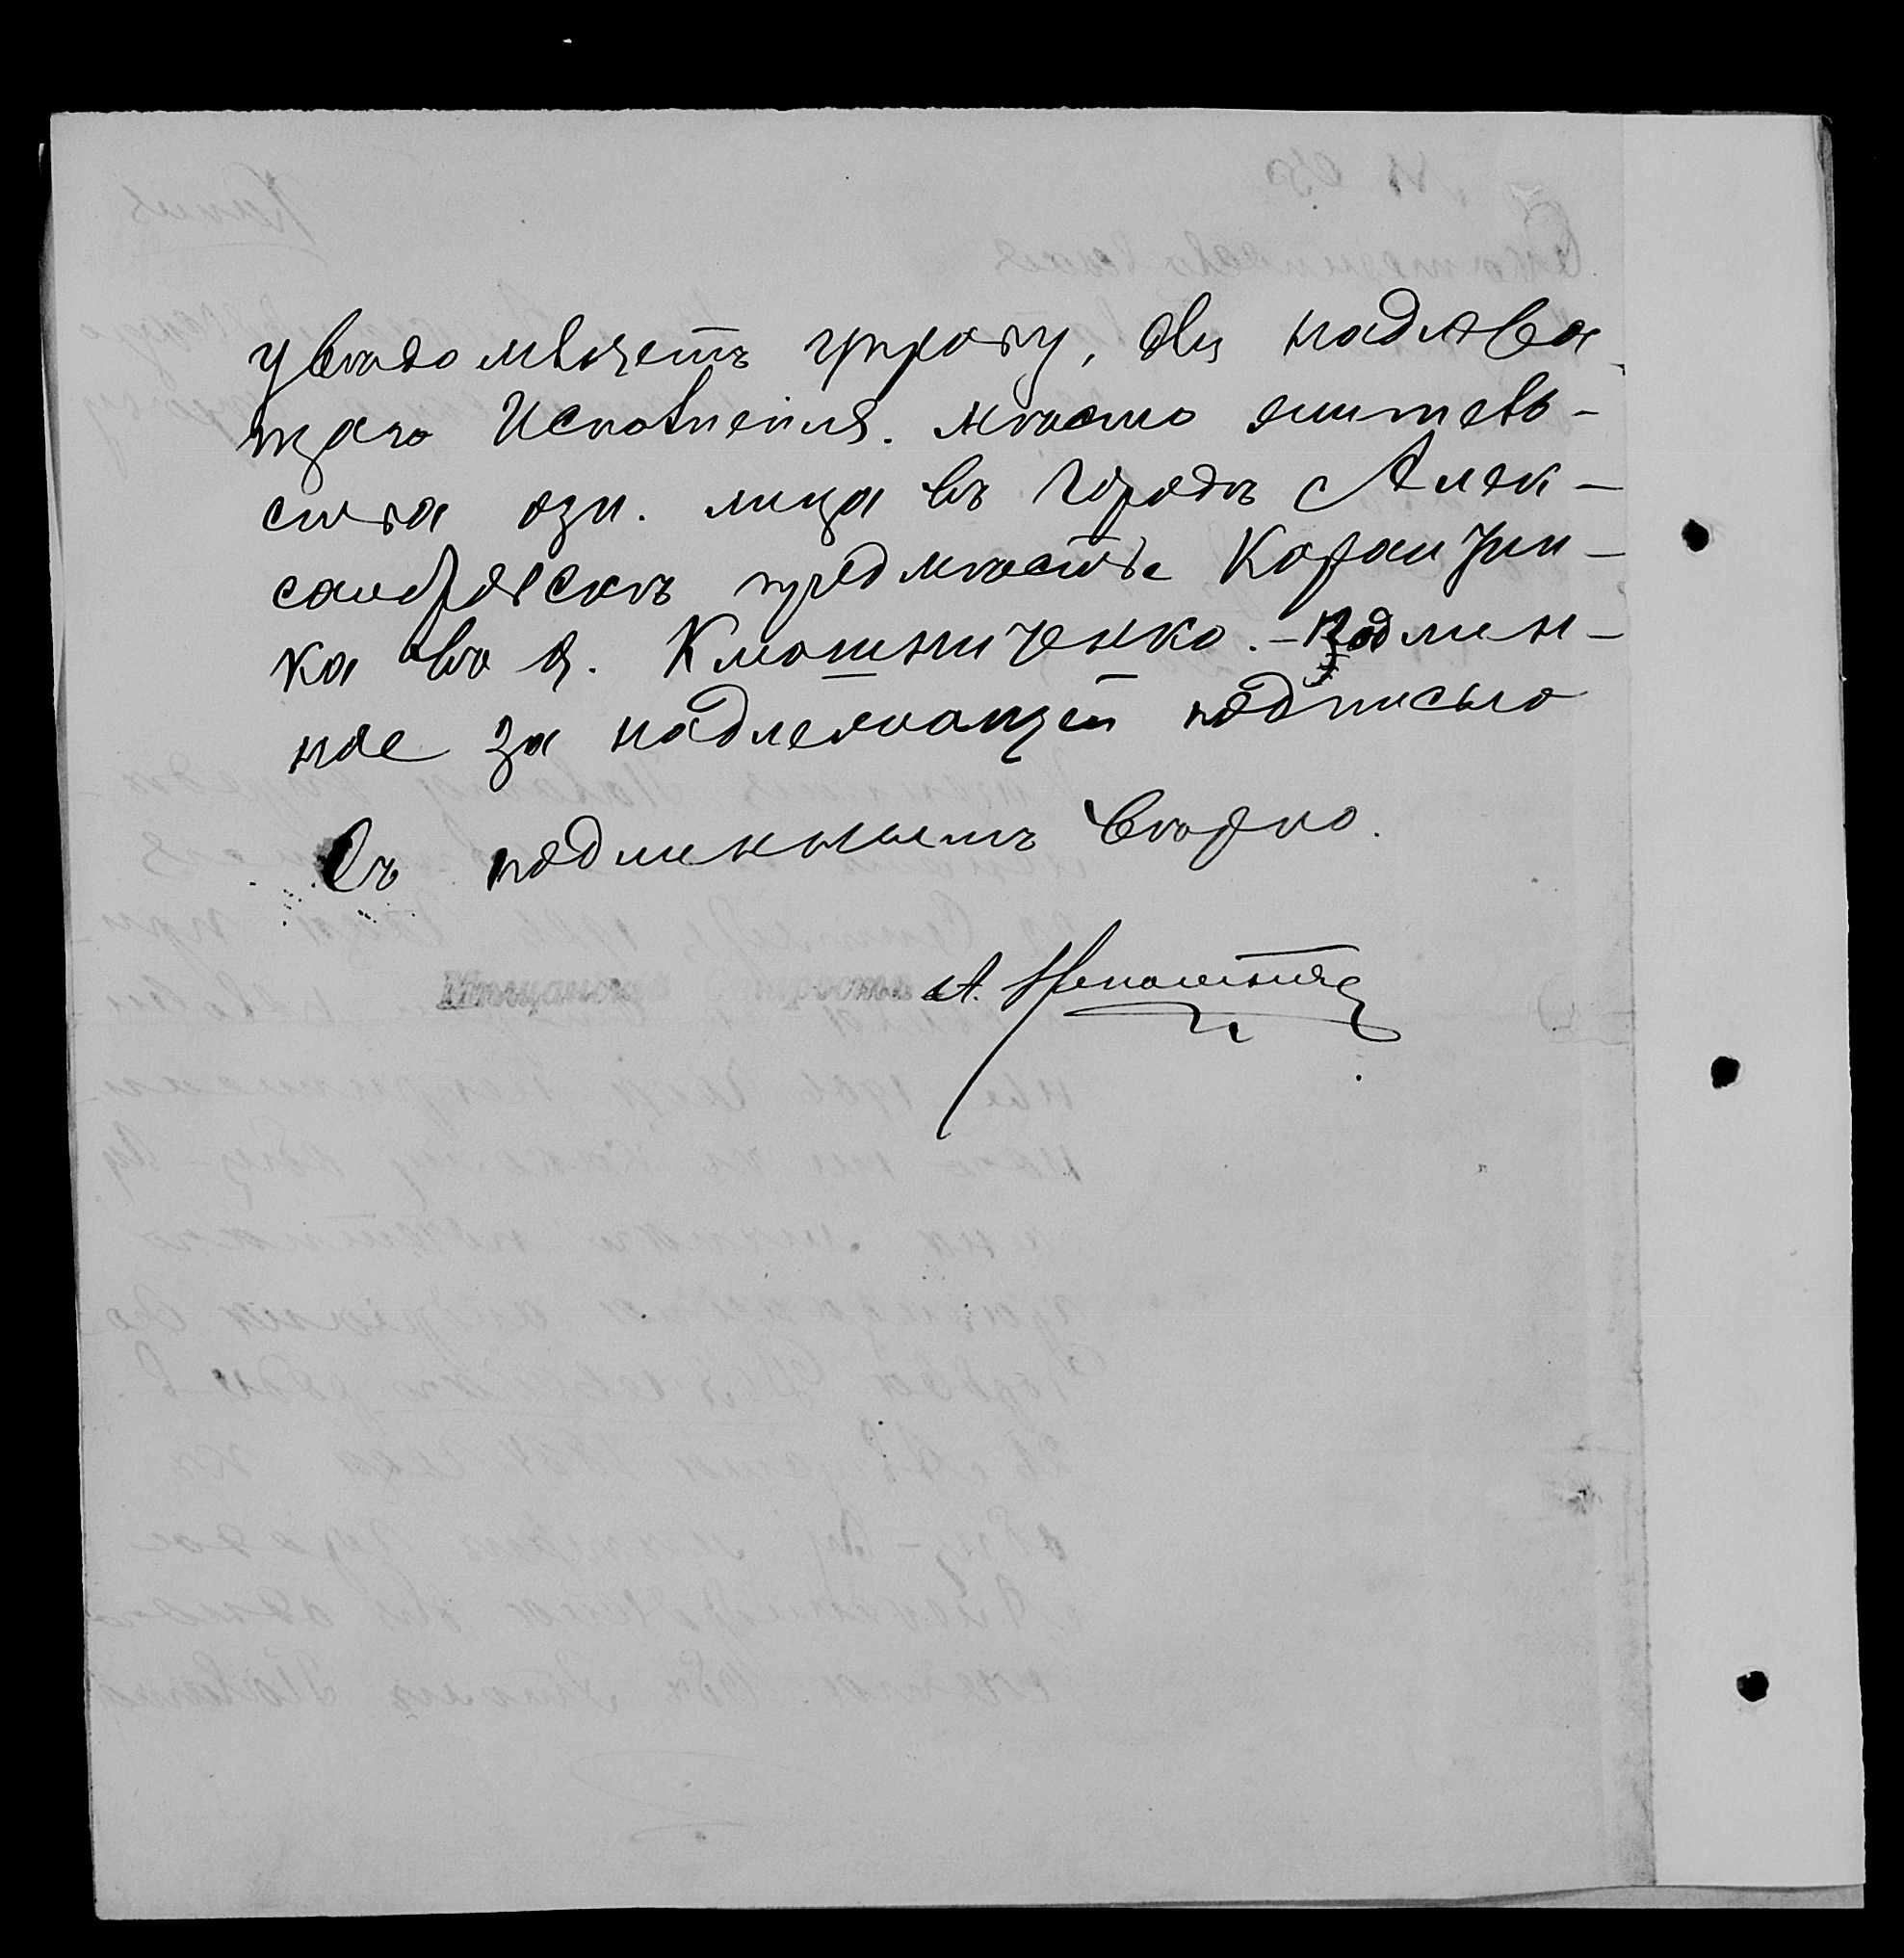 увѣдомляетъ управу, для надлежа-
щаго исполненія. мѣсто житель-
ства озн. лица въ городѣ Алек-
сандровскѣ предмѣстье Карантин-
ка въ д. Клюшниченко. - Подлин-
ное за надлежащей подписью
Съ подлиннымъ вѣрно.
Мѣщанскій Староста А. Непомнящ